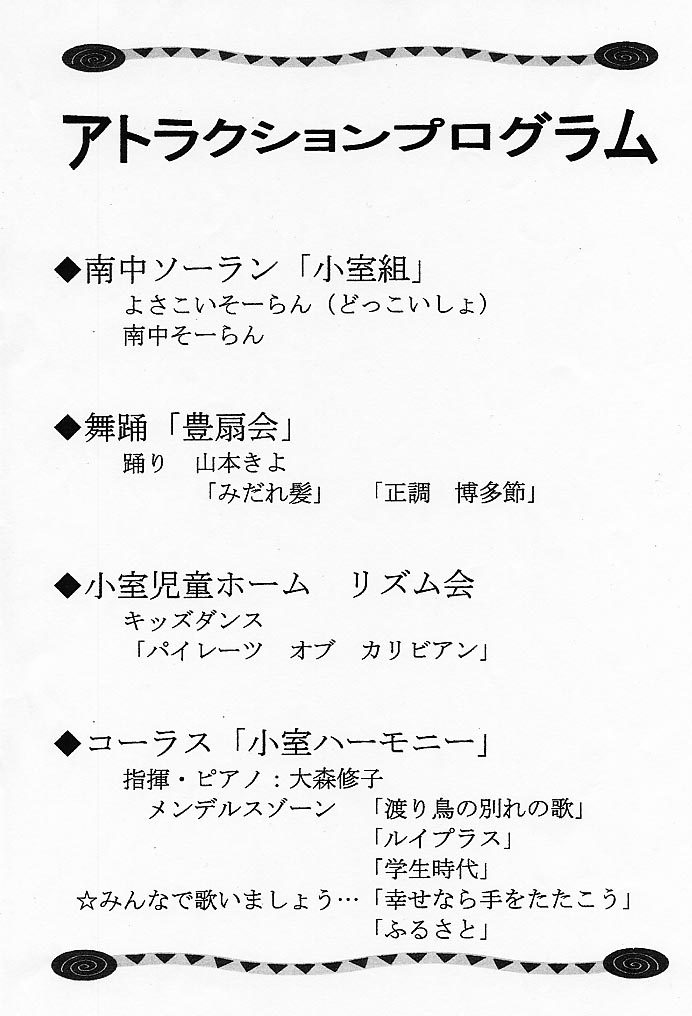 アトラクションプログラム
◆南中ソーラン「小室組」
よさこいそーらん（どっこいしょ）
南中そーらん
◆舞踊「豊扇会」
踊り　山本きよ
「みだれ髪」　「正調　博多節」
◆小室児童ホーム　リズム会
キッズダンス
「パイレーツ　オブ　カリビアン」
◆コーラス「小室ハーモニー」
指揮・ピアノ：大森修子
メンデルスゾーン　「渡り鳥の別れの歌」
「ルイプラス」
「学生時代」
☆みんなで歌いましょう…「幸せなら手をたたこう」
「ふるさと」